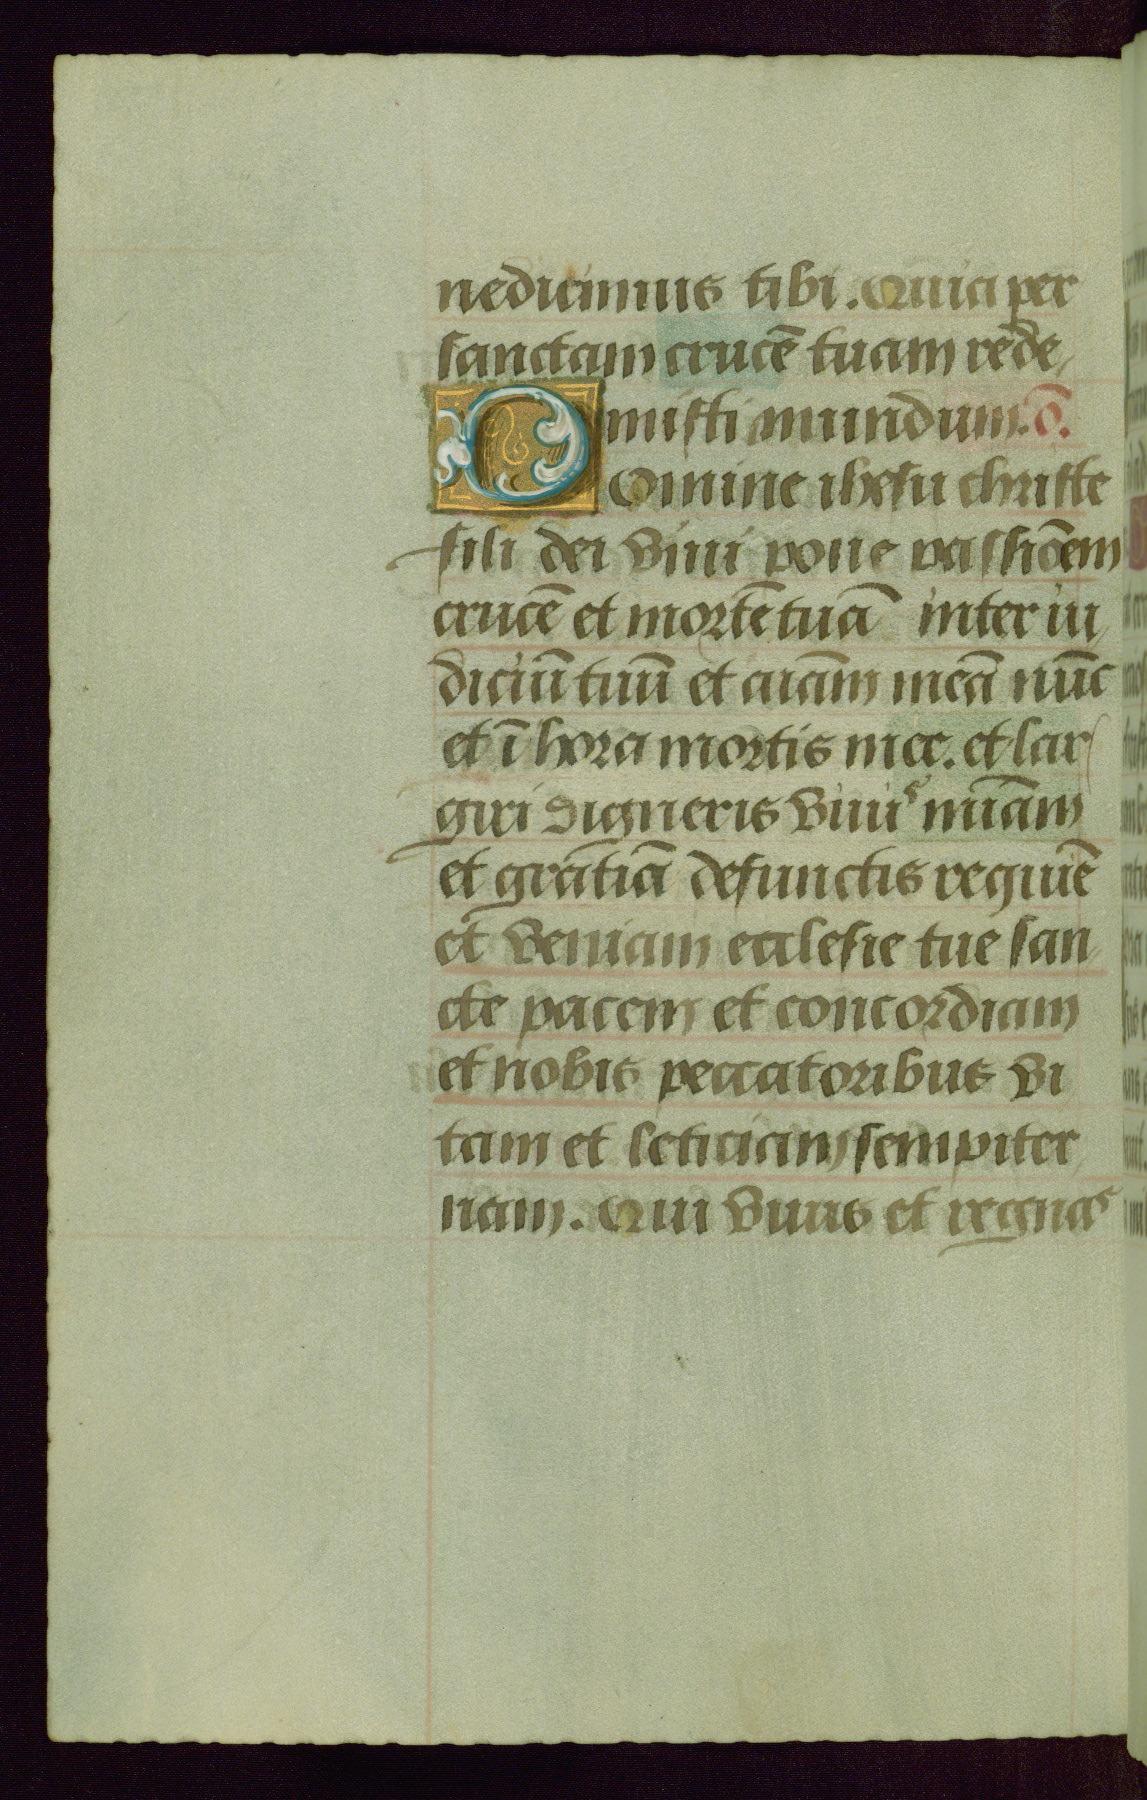 nedicimus tibi. Quia per
sanctam crucē tuam rede,
misti mundum. ō.
Domine ihesu christe
fili dei viui pone passiōem
crucē et mortē tuā inter iu,
diciū tuū et aīam meā nūc
et ī hora mortis mee. et lar
giri digneris viuis miām
et gratiā defunctis requiē
et veniam ecclesie tue san
cte pacem et concordiam
et nobis peccatoribus vi
tam et leticiam sempiter
nam. Qui viuis et regnas